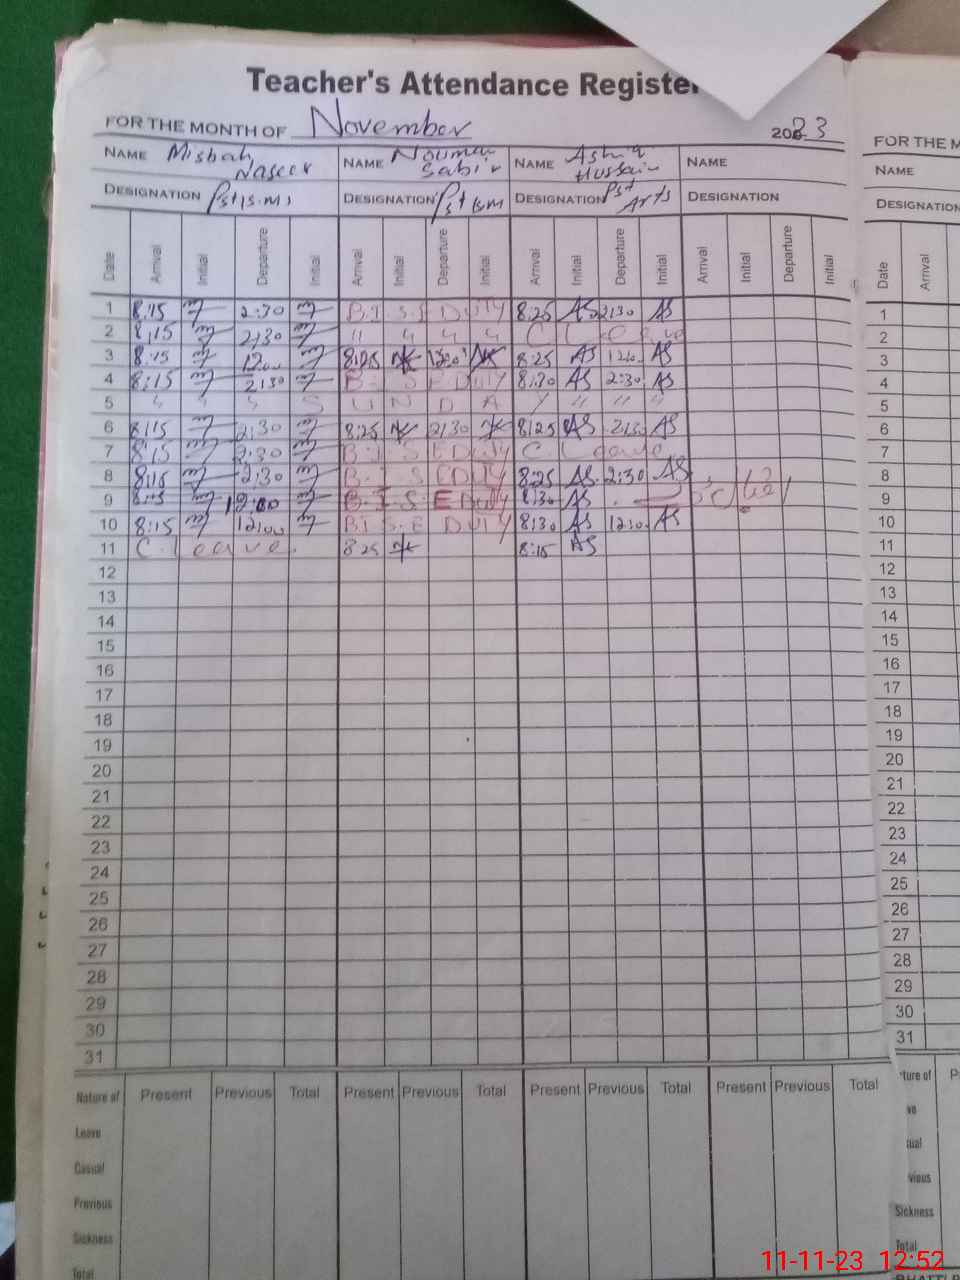 Teacher's Attendance Register
FOR THE MONTH OF November 2023
NAME Misbah Naseer NAME Nouman Sabir NAME Ashiq Hussain NAME
DESIGNATION Pst (S.M) DESIGNATION Pst SM DESIGNATION Pst Arts DESIGNATION
Date Arrival Initial Departure Initial Arrival Initial Departure Initial Arrival Initial Departure Initial Arrival Initial Departure Initial
1 8:15 2:30 B.I.S.E Duty 8:25 AS 2:30 AS
2 8:15 2:30 " " " " C Leave
3 8:15 12:00 8:25 12:00 8:25 AS 12:00 AS
4 8:15 2:30 B.I.S.E Duty 8:30 AS 2:30 AS
5 " " " S U N D A Y " " "
6 8:15 2:30 8:25 2:30 8:25 AS 2:30 AS
7 8:15 2:30 B.I.S.E Duty C Leave
8 8:15 2:30 B.I.S.E Duty 8:25 AS 2:30 AS
9 8:15 12:00 B.I.S.E Duty 8:30 AS
10 8:15 12:00 B.I.S.E Duty 8:30 AS 12:00 AS
11 C. Leave. 8:25 8:15 AS
12
13
14
15
16
17
18
19
20
21
22
23
24
25
26
27
28
29
30
31
Nature of Present Previous Total Present Previous Total Present Previous Total Present Previous Total
Leave
Casual
Previous
Sickness
Total
FOR THE M
NAME
DESIGNATION
Date Arrival
1
2
3
4
5
6
7
8
9
10
11
12
13
14
15
16
17
18
19
20
21
22
23
24
25
26
27
28
29
30
31
Sickness
Total
11-11-23 12:52